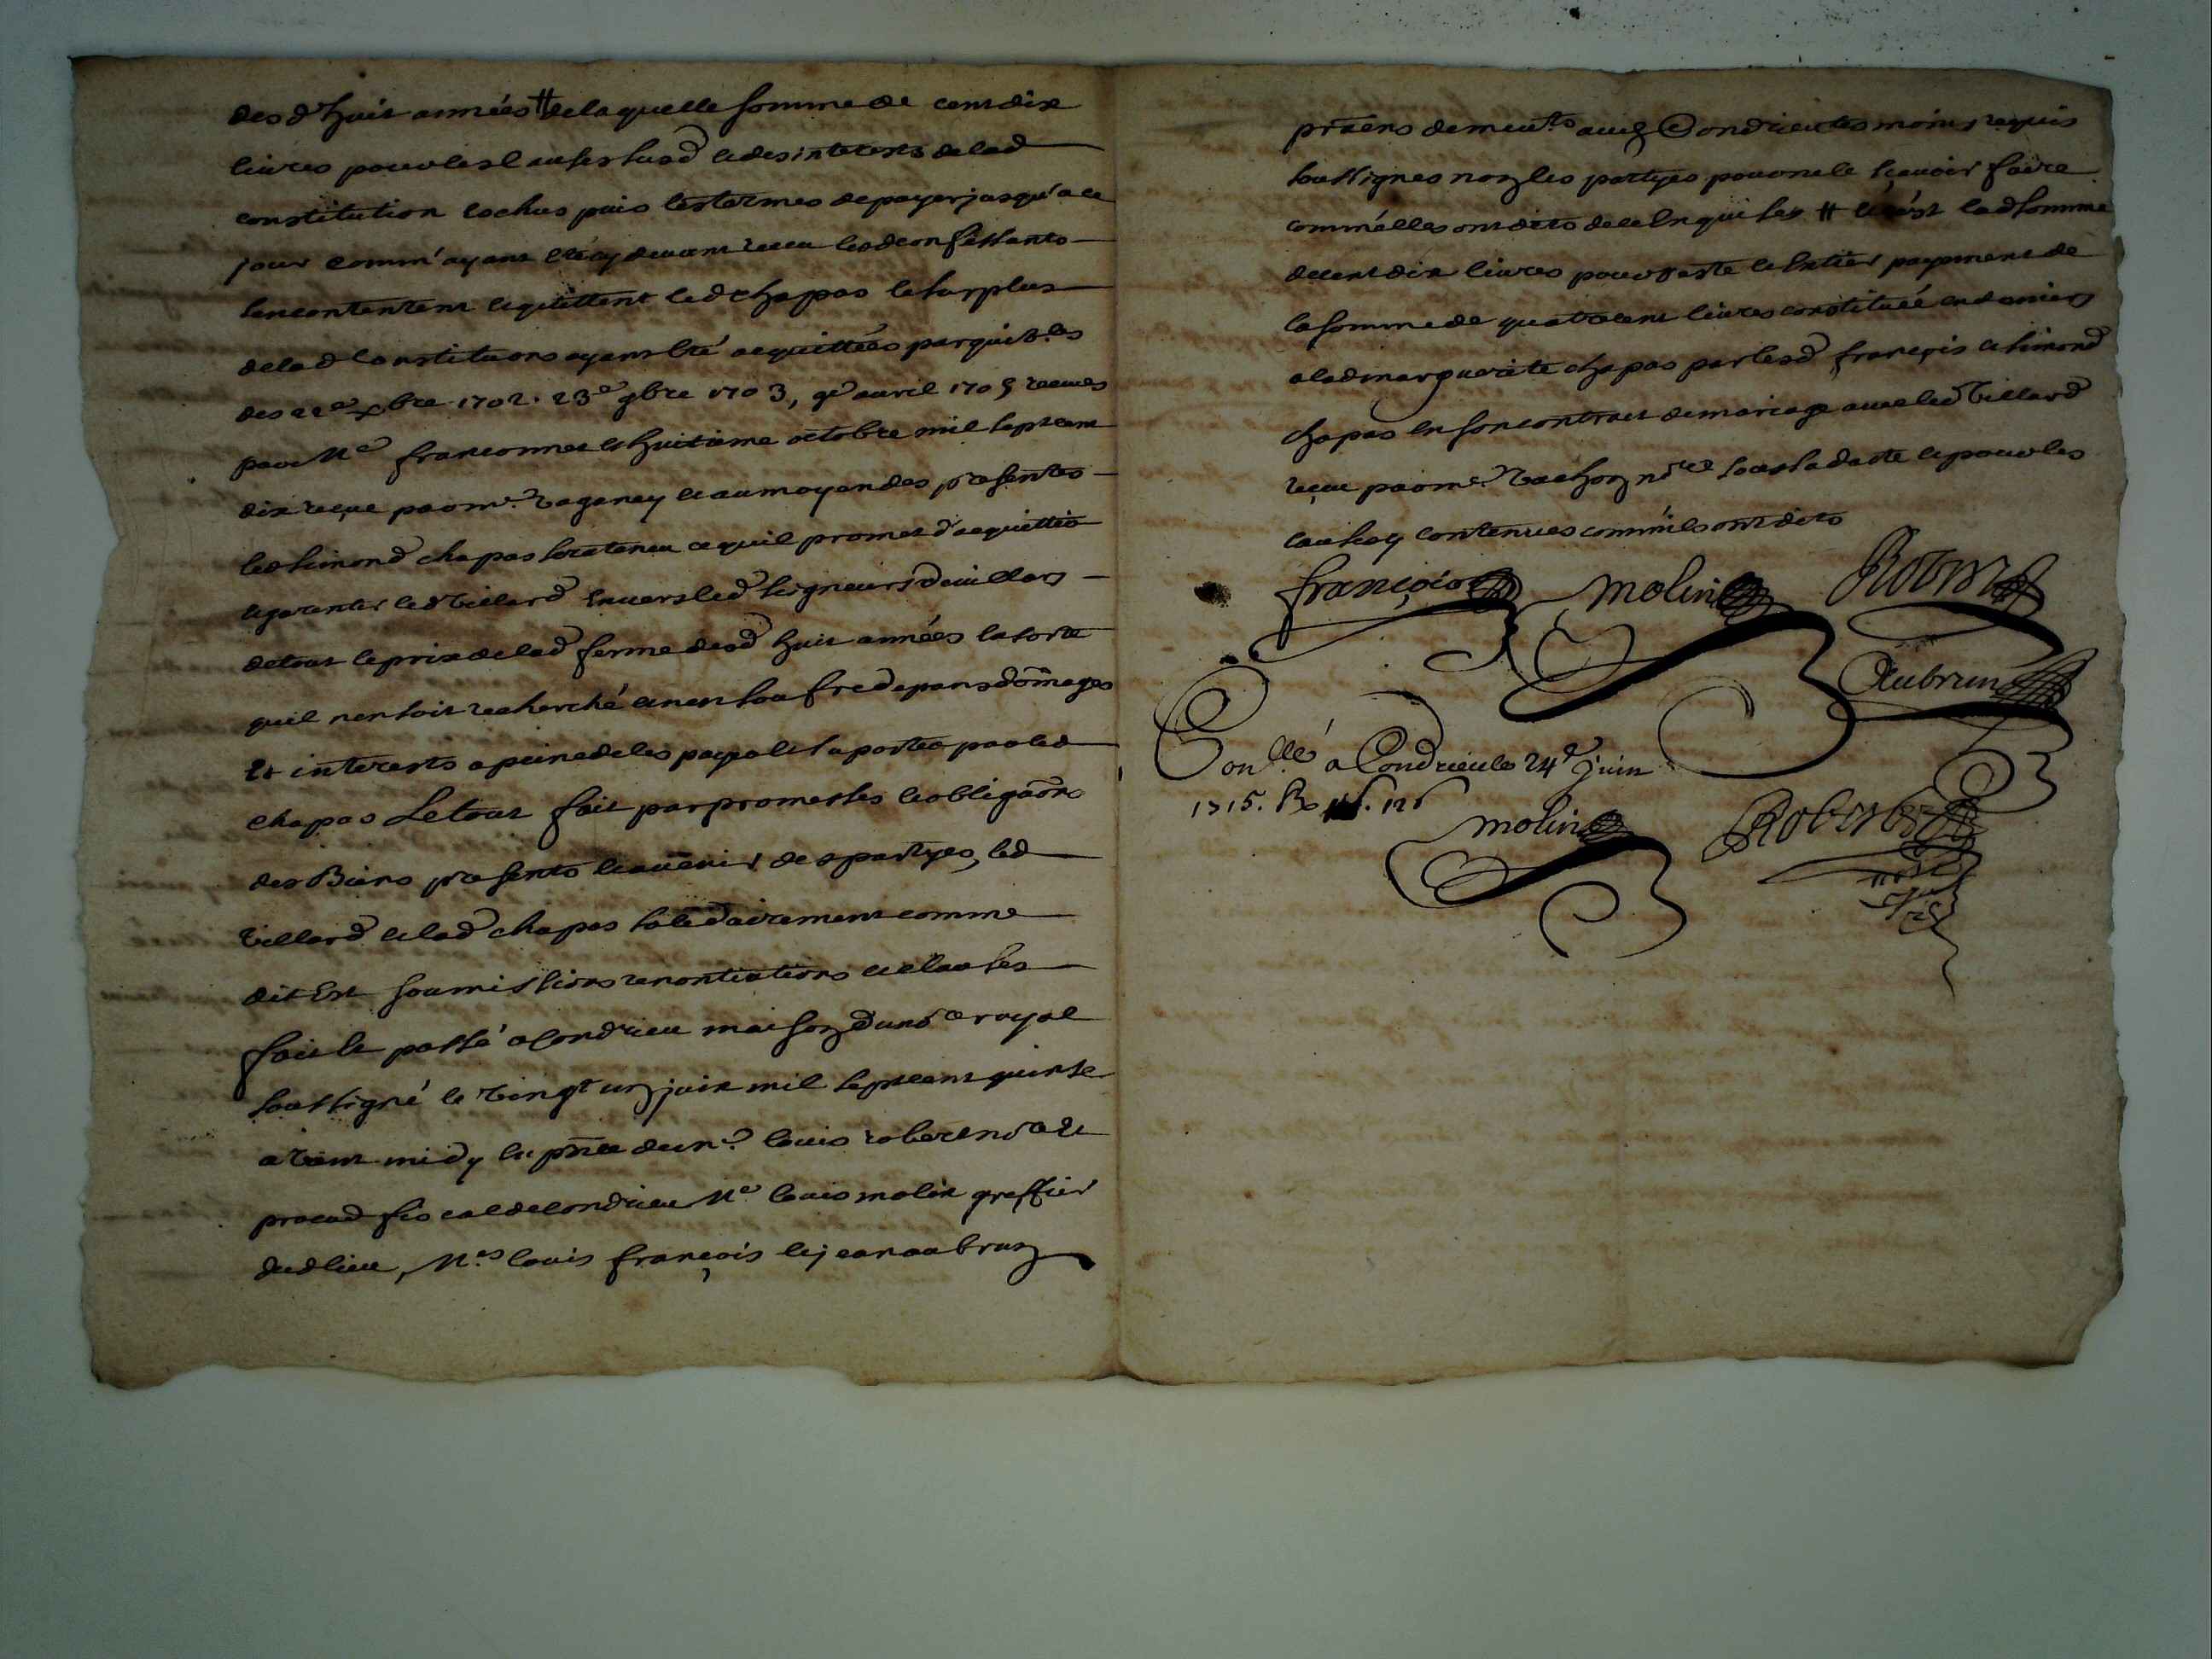 desd huit années # de laquelle somme de cent dix
livres pour les causes susd et des interests de lad
constitution eschus puis les termes de payer jusqu'a ce
jour comm'ayant esté cy devant receu lesd confessants
sen contentent et quittent led chapas le surplus
de lad constitutions ayant été acquittées par quit.es
des 22e xbre 1702. 23e 9bre 1703, 9e avril 1705 receues
par Me franconnet et huitieme octobre mil sept cent
dix reçue par me. Vaganay et au moyen des presentes
led simond chapas sera tenu ce quil promet d'acquitter
et garentir led Villard envers led seigneur de villars
de tout le prix de lad ferme desd huit années la sorte
quil nen soit recherché et nen souffre depans domages
Et interests a peine de les payer et suporter par led
chapas Le tout fait par promesses et obligaons
des Biens presents et avenir des partyes, led
Villard et lad chapas solidairement comme
dit Est soumissions renontiations et clauses
fait et passé a Condrieu maison du nore royal
soussigné le vingt un juin mil sept cent quinse
avant midy en pnce de me. louis robert nore et
procud fiscal de Condrieu Me louis molin greffier
dud lieu, Mes louis françois et jean aubrun
praëns demeurts aud Condrieu tesmoins requis
soussignes non les partyes pour ne le sçavoir faire
comm'elles ont dit de ce Enquises # et c'est lad somme
de cent dix livres pour reste et Entier payement de
la somme de quatre cent livres constituée en deniers
a lad marguerite chapas par lesd françois et simond
chapas en son contract de mariage avec led Villard
reçue par me. Vachon nore sous sa datte et pour les
causes y contenues comm'ils ont dit
françois Molin Robert
Aubrun
Conllé a Condrieu le 24e juin
1715. R
Molin Robert
nore